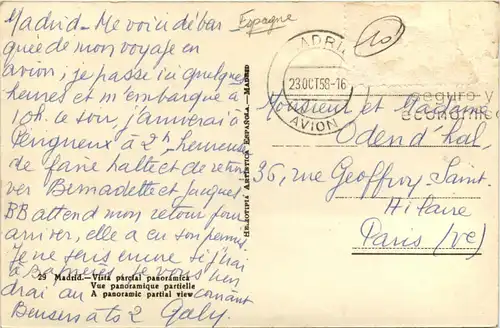 Madrid - Me voici débar
quée de mon voyage en
avion; je passe ici quelques
heures et m'embarque à
10h. le soir, j'arriverai à
Périgueux à 2h, heureuse
de faire halte et de retrou
ver Bernadette et Jacques
BB attend mon retour pour
arriver, elle a eu son permis.
Je ne sais encore si j'irai
à
Je vous
drai au courant
Bons
Galy
Espagne
10
MADRID
23 OCT 58-16
AVION
seguro y
económico
Monsieur et Madame
Oden d'hal,
36, rue Geoffroy-Saint-
Hilaire
Paris (Ve)
HELIOTIPIA ARTÍSTICA ESPAÑOLA.—MADRID
29 Madrid.—Vista parcial panorámica
Vue panoramique partielle
A panoramic partial view